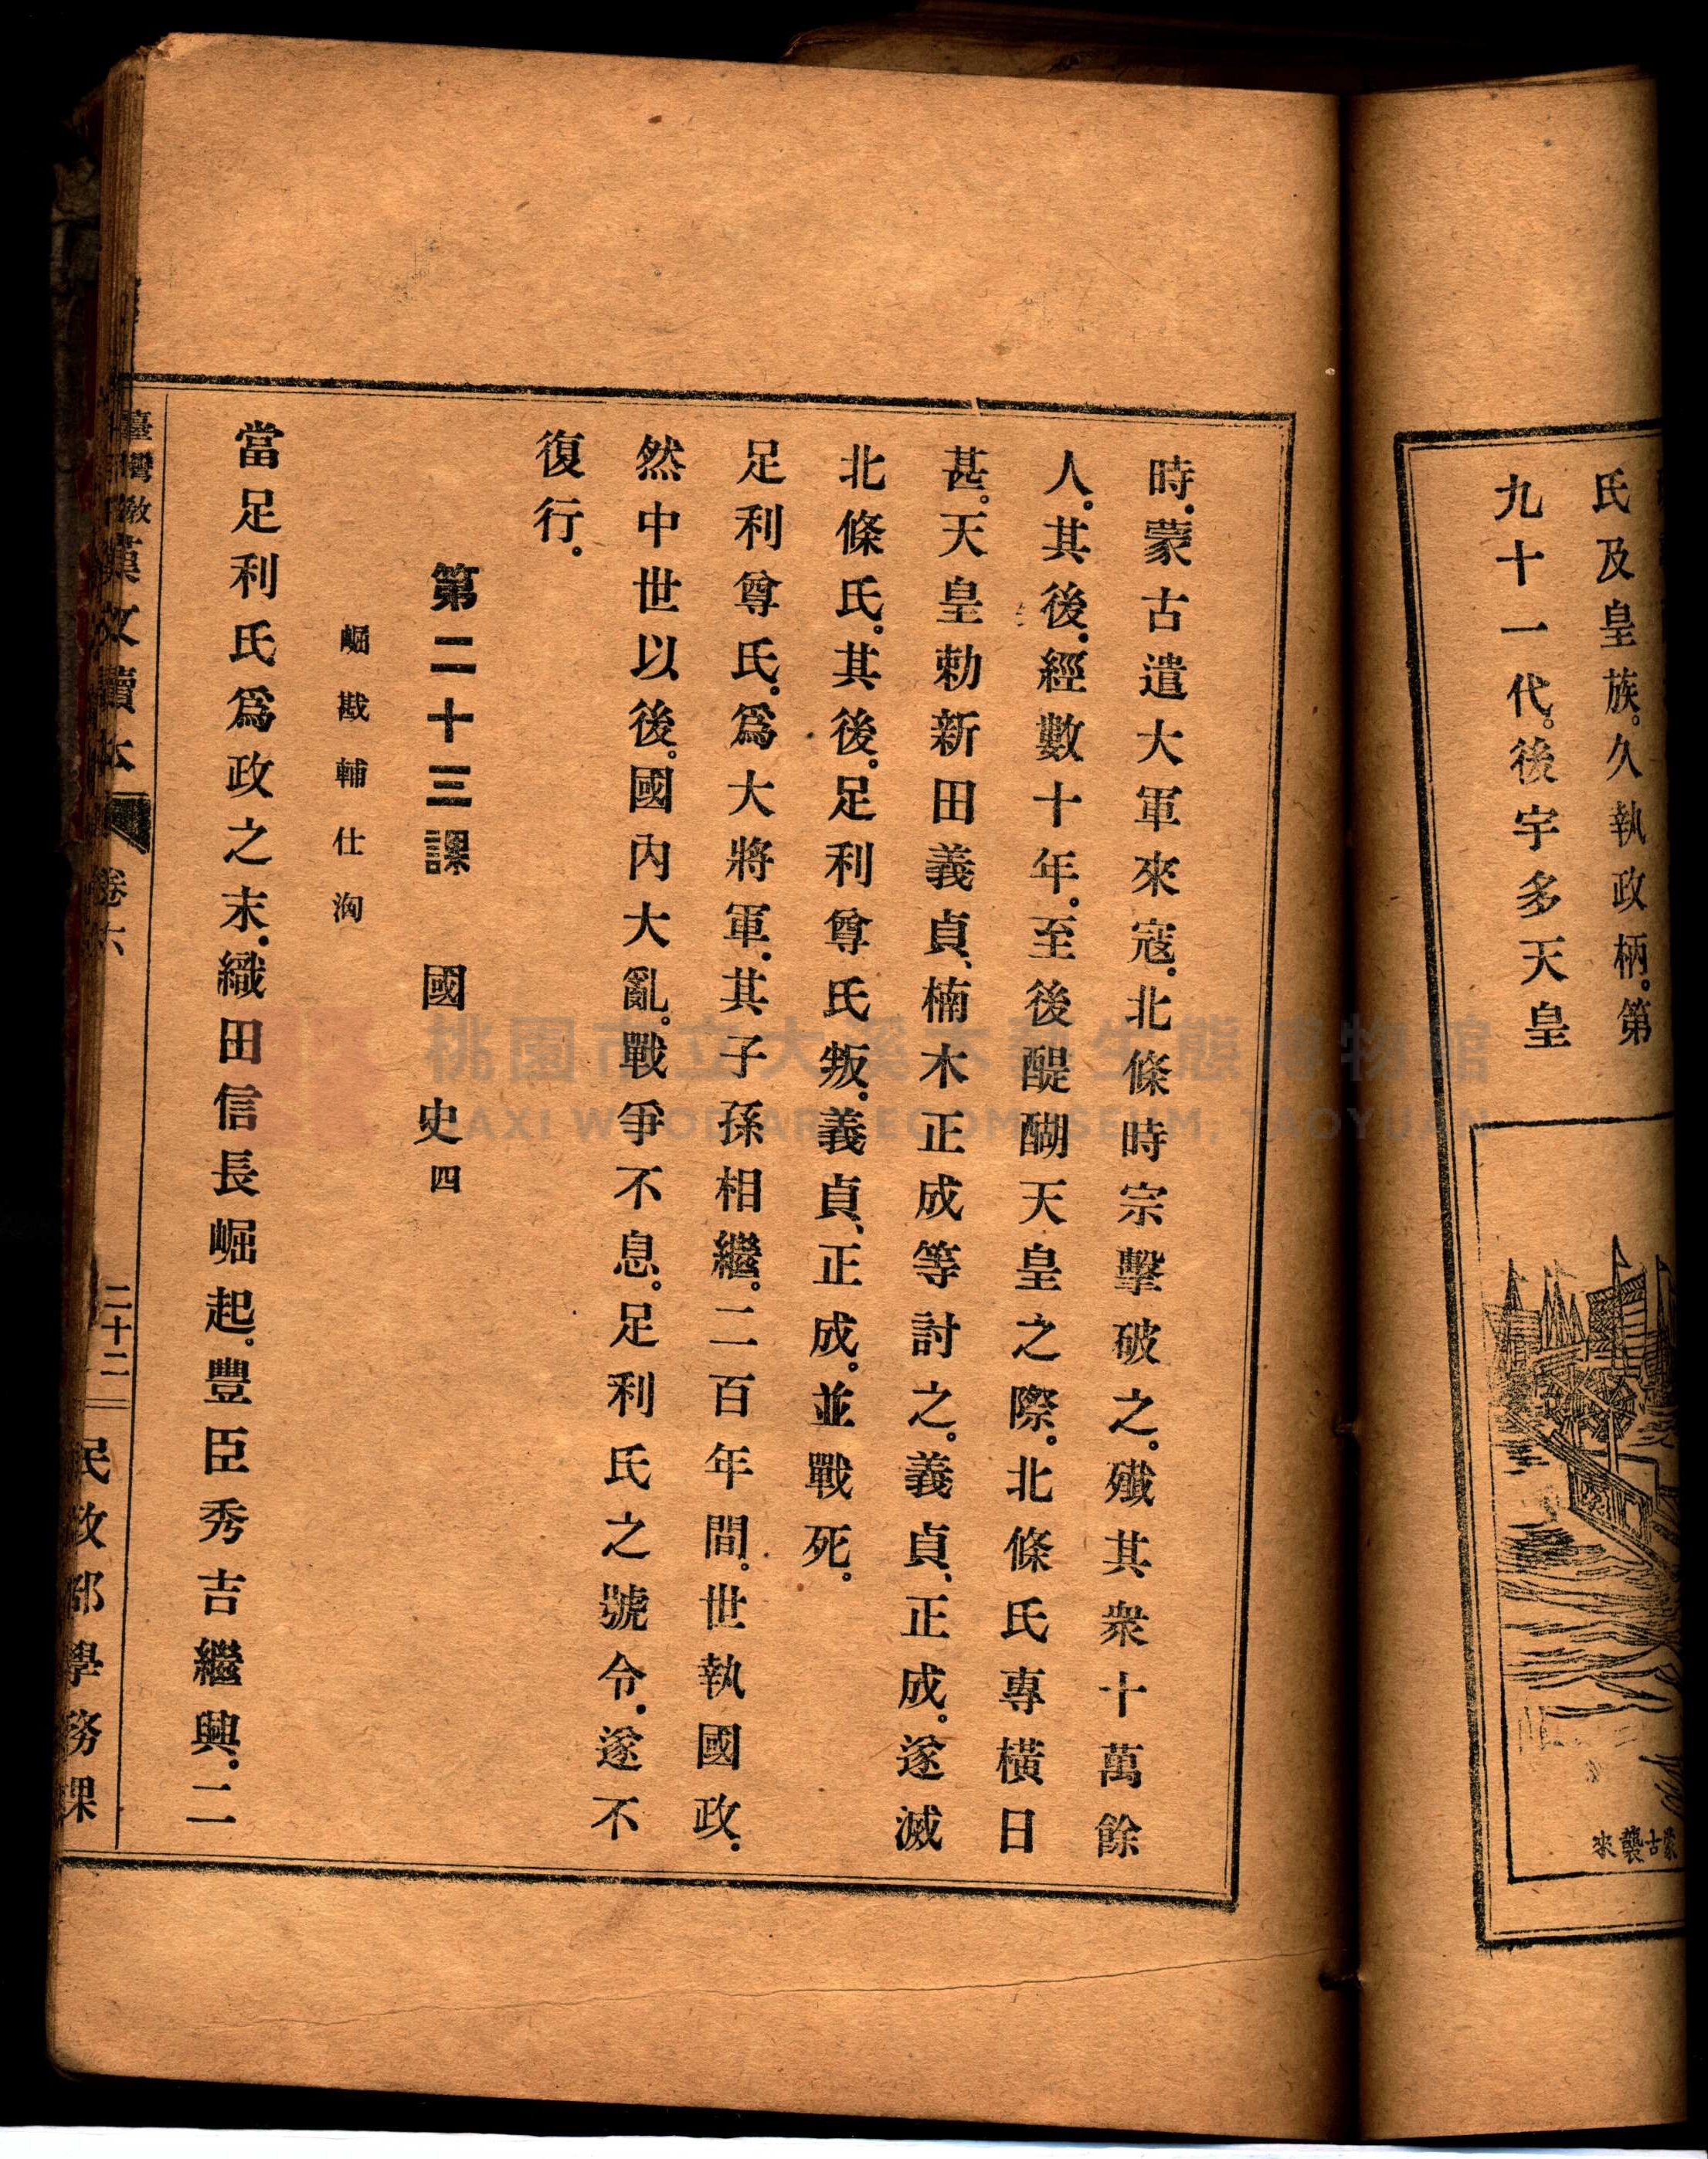 氏及皇族。久執政柄。第
九十一代。後宇多天皇
蒙古襲來
時。蒙古遣大軍來寇。北條時宗擊破之。殲其衆十萬餘
人。其後。經數十年。至後醍醐天皇之際。北條氏專橫日
甚。天皇勅新田義貞、楠木正成等討之。義貞、正成。遂滅
北條氏。其後。足利尊氏叛。義貞、正成。並戰死。
足利尊氏。爲大將軍。其子孫相繼。二百年間。世執國政。
然中世以後。國內大亂。戰爭不息。足利氏之號令。遂不
復行。
第二十三課 國史 四
崛 戡 輔 仕 洶
當足利氏爲政之末。織田信長崛起。豐臣秀吉繼興。二
臺灣教 漢文讀本 卷六 二十二 民政部學務課
桃園市立大溪木藝生態博物館
DAXI WOOD ART ECOMUSEUM, TAOYUAN